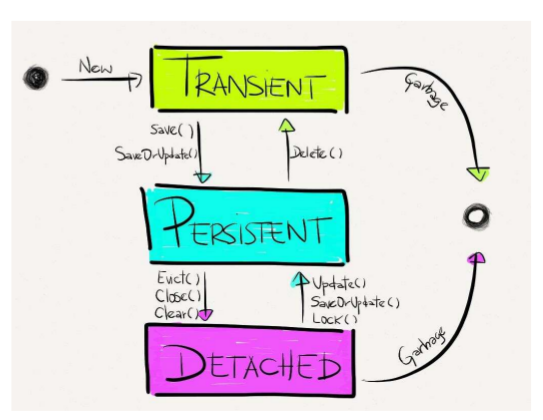 New
TRANSIENT
Garbage
Save()
SaveOrUpdate()
Delete()
PERSISTENT
Evict()
Close()
Clear()
Update()
SaveOrUpdate()
Lock()
Garbage
DETACHED